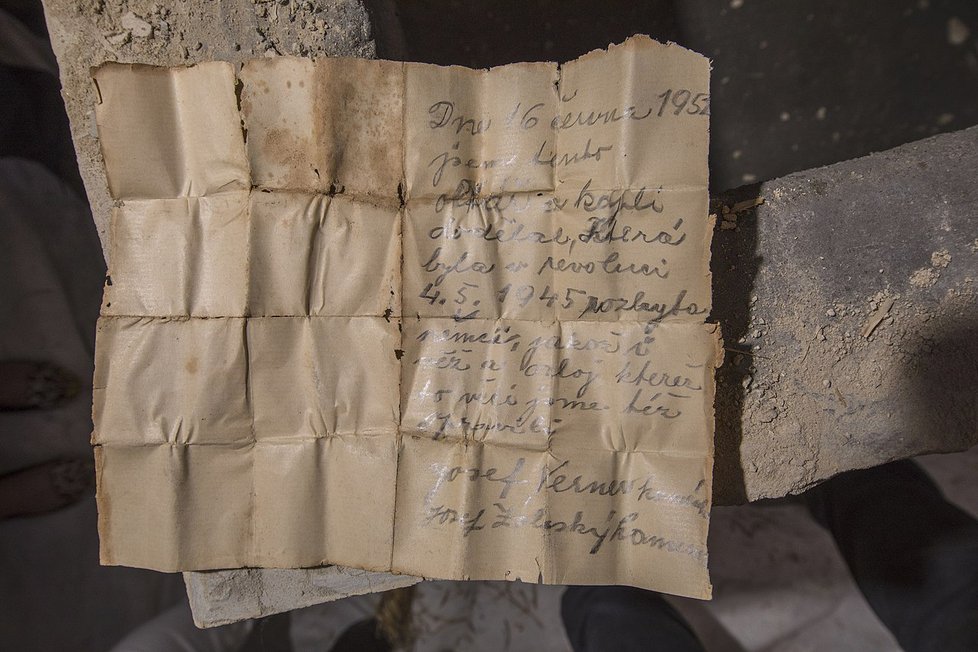 Dne 16 června 1952
jsme tento
oltář a kapli
dodělal, Která
byla v revoluci
4. 5. 1945 rozbyta
němci, jakož i
věž a orloj kteréž
to věci jsme též
spravili
Josef Verner
Josef Zaleský